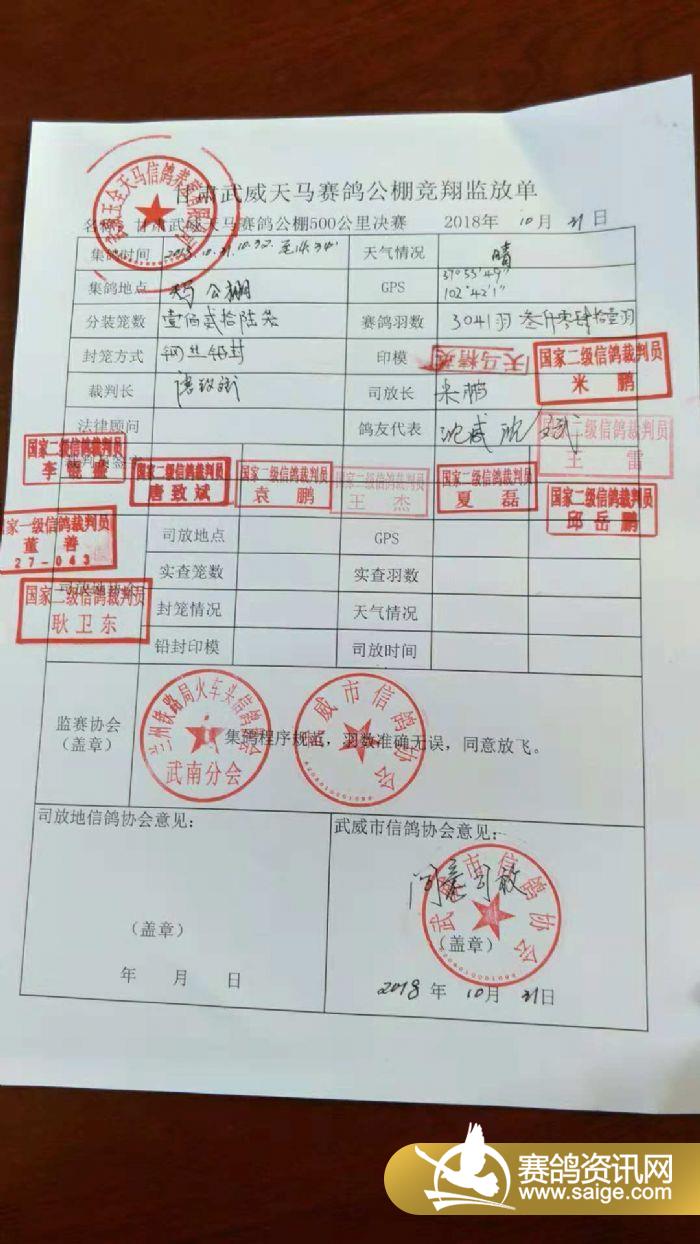 甘肃武威天马赛鸽公棚竞翔监放单
名称：甘肃武威天马赛鸽公棚500公里决赛 2018年 10月 31日
集鸽时间 2018.10.31. 天气情况 晴
集鸽地点 天马公棚 GPS 37°53′49″ 102°42′1″
分装笼数 壹佰贰拾陆笼 赛鸽羽数 3041羽 叁仟零肆拾壹羽
封笼方式 钢丝铅封 印模 天马精英
国家二级信鸽裁判员
米 鹏
裁判长 唐致斌 司放长 米鹏
法律顾问 鸽友代表 沈威
国家二级信鸽裁判员
王 雷
国家二级信鸽裁判员
国家二级信鸽裁判员
唐致斌
国家二级信鸽裁判员
袁 鹏
国家二级信鸽裁判员
王 杰
国家二级信鸽裁判员
夏 磊
国家二级信鸽裁判员
邱岳鹏
国家一级信鸽裁判员
董 善
27-043
国家二级信鸽裁判员
耿卫东
司放地点 GPS
实查笼数 实查羽数
封笼情况 天气情况
铅封印模 司放时间
监赛协会
（盖章）
兰州铁路局火车头信鸽协会
武南分会
武威市信鸽协会
集鸽程序规范，羽数准确无误，同意放飞。
司放地信鸽协会意见：
（盖章）
年 月 日
武威市信鸽协会意见：
同意司放
武威市信鸽协会
（盖章）
2018 年 10月 31日
赛鸽资讯网
www.saige.com